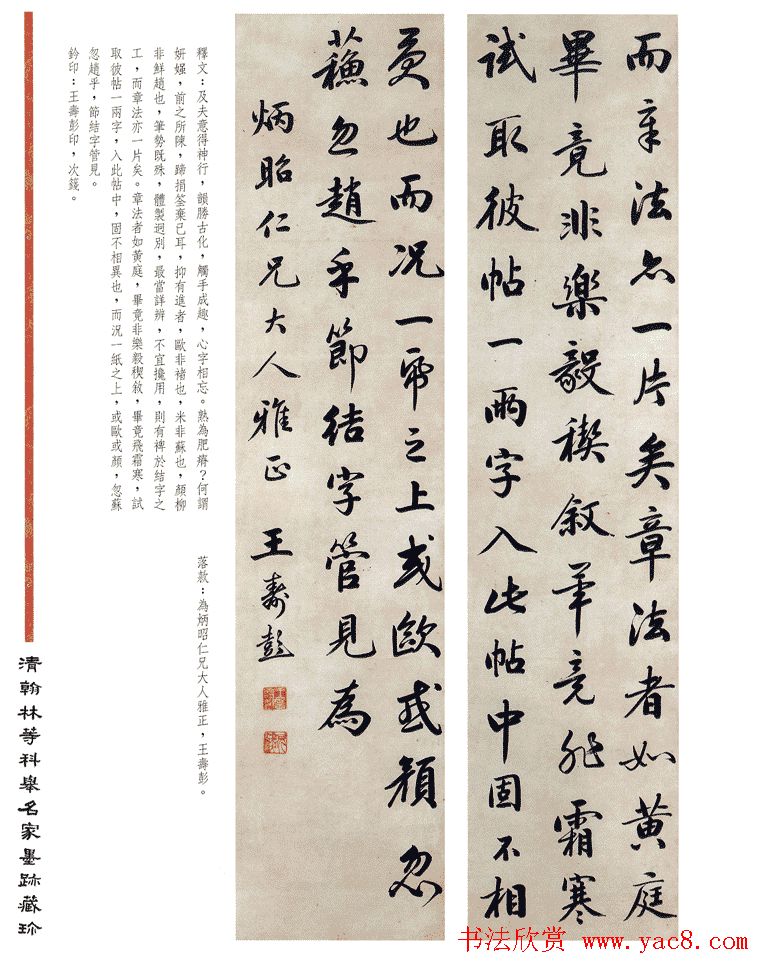 而章法亦一片矣章法者如黄庭
畢竟非樂毅禊叙畢竟非霜寒
試取彼帖一兩字入此帖中固不相
異也而况一帋之上或歐或顏忽
蘓忽趙乎節結字管見為
炳昭仁兄大人雅正 王壽彭
釋文：及夫意得神行，韻勝古化，觸手成趣，心字相忘。熟為肥瘠？何謂
妍媸，前之所陳，蹄捐筌棄已耳，抑有進者，歐非褚也，米非蘇也，顏柳
非鮮趙也，筆勢既殊，體製迥別，最當詳辨，不宜攙用，則有裨於結字之
工，而章法亦一片矣。章法者如黃庭，畢竟非樂毅禊敘，畢竟飛霜寒，試
取彼帖一兩字，入此帖中，固不相異也，而況一紙之上，或歐或顏，忽蘇
忽趙乎，節結字管見。
鈐印：王壽彭印，次籛。
落款：為炳昭仁兄大人雅正，王壽彭。
清翰林等科舉名家墨跡藏珍
书法欣赏 www.yac8.com